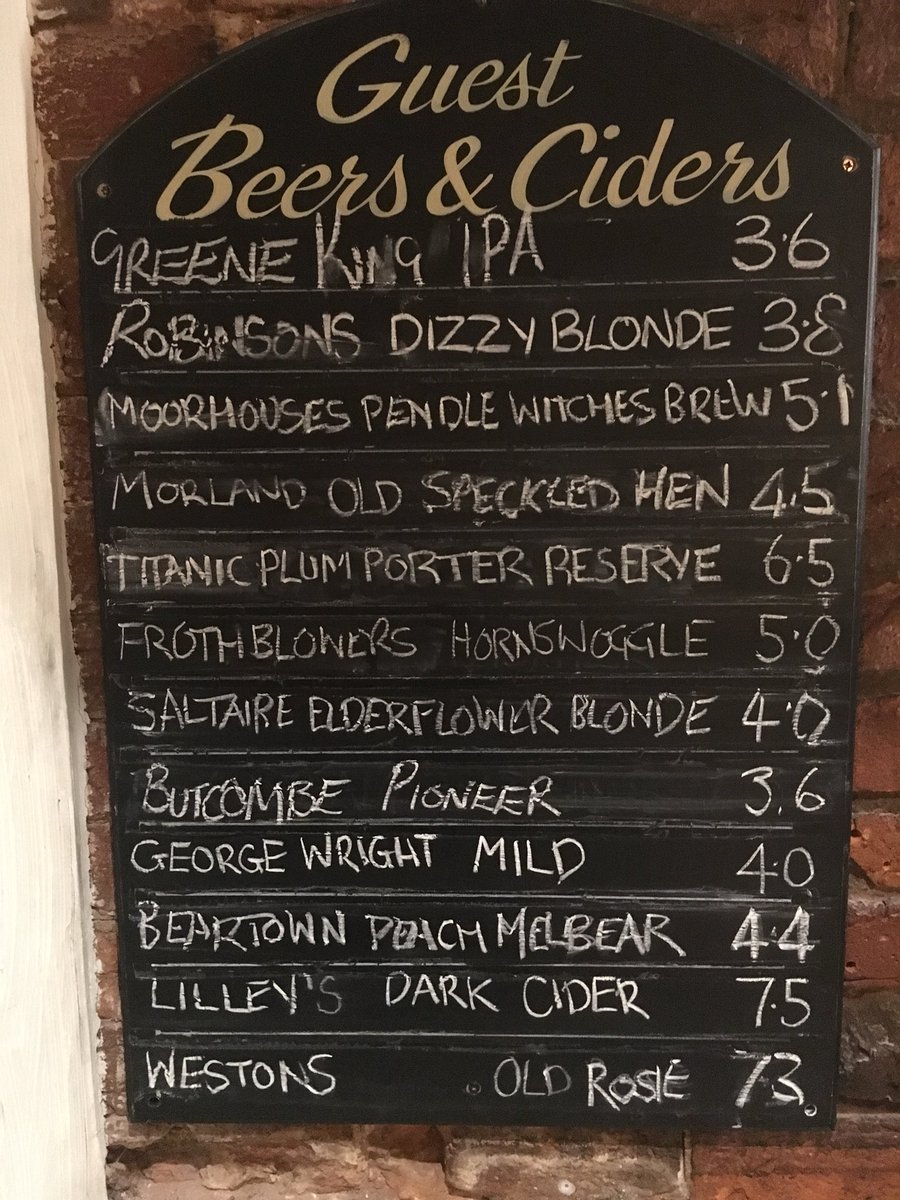 Guest
Beers & Ciders
GREENE KING IPA 3.6
ROBINSONS DIZZY BLONDE 3.8
MOORHOUSES PENDLE WITCHES BREW 5.1
MORLAND OLD SPECKLED HEN 4.5
TITANIC PLUM PORTER RESERVE 6.5
FROTHBLOWERS HORNSWOGGLE 5.0
SALTAIRE ELDERFLOWER BLONDE 4.0
BUTCOMBE PIONEER 3.6
GEORGE WRIGHT MILD 4.0
BEARTOWN PEACH MELBEAR 4.4
LILLEY'S DARK CIDER 7.5
WESTONS OLD ROSIE 7.3